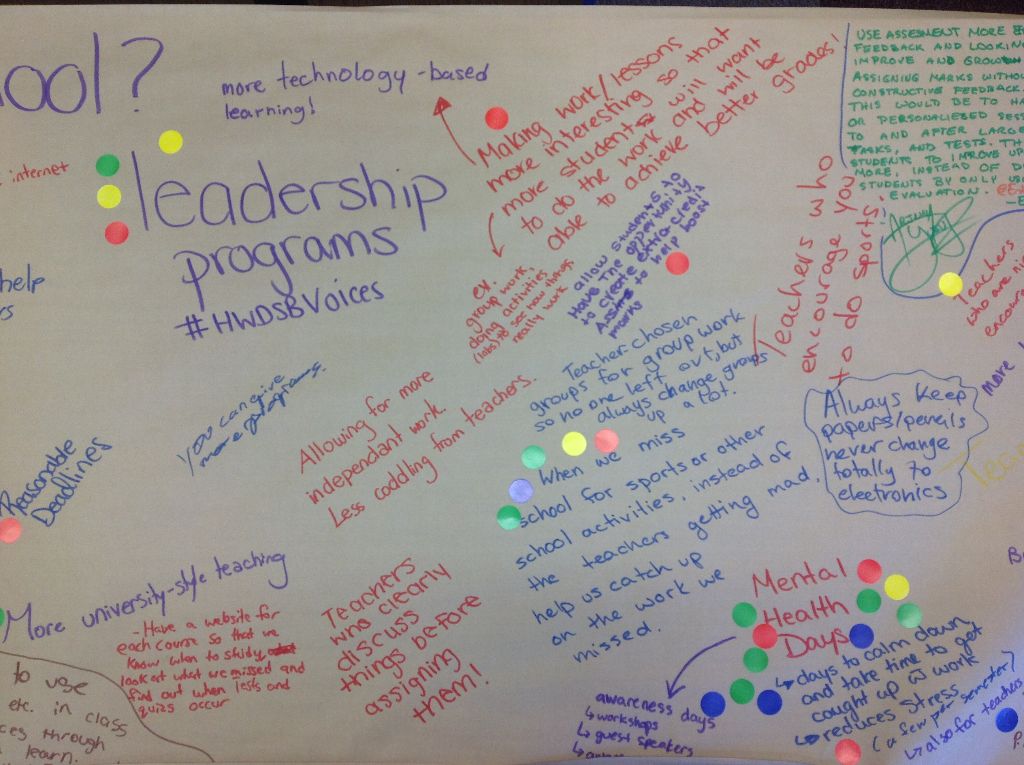 ool?
more technology-based
learning!
internet
leadership
programs
#HWDSBVoices
Making work/lessons
more interesting so that
more students will want
to do the work and will be
able to achieve better grades!
ex.
group work,
doing activities
(labs) to see how things
really work
allow students to
Have the opportunity
to create extra-credit
Assms to help boost
marks
USE ASSESMENT MORE
FEEDBACK AND LOOKIN
IMPROVE AND GROW
ASSIGNING MARKS WITHOU
CONSTRUCTIVE FEEDBACK.
THIS WOULD BE TO HA
OR PERSONALIESED SESS
TO AND AFTER LARGE
TASKS, AND TESTS. TH
STUDENTS TO IMPROVE UP
MORE, INSTEAD OF D
STUDENTS BY ONLY US
EVALUATION.
Teachers who
encourage you
to do sports!
Teachers
who are ni
encour
help
rs
You can give
more programs.
Allowing for more
independant work.
Less coddling from teachers.
Teacher-chosen
groups for group work
so no one left out, but
always change groups
up a lot.
Always Keep
papers/pencils
never change
totally to
electronics
more
Reasonable
Deadlines
When we miss
school for sports or other
school activities, instead of
the teachers getting mad,
help us catch up
on the work we
missed.
More university-style teaching
- Have a website for
each course so that we
know when to study
look at what we missed and
find out when tests and
quizs occur
Teachers
who clearly
discuss
things before
assigning
them!
Mental
Health
Days
↳ days to calm down
and take time to get
caught up w work
↳ reduces stress
(a few per semester)
↳ also for teachers
awareness days
↳ workshops
↳ guest speakers
to use
etc. in class
ces through
learn.